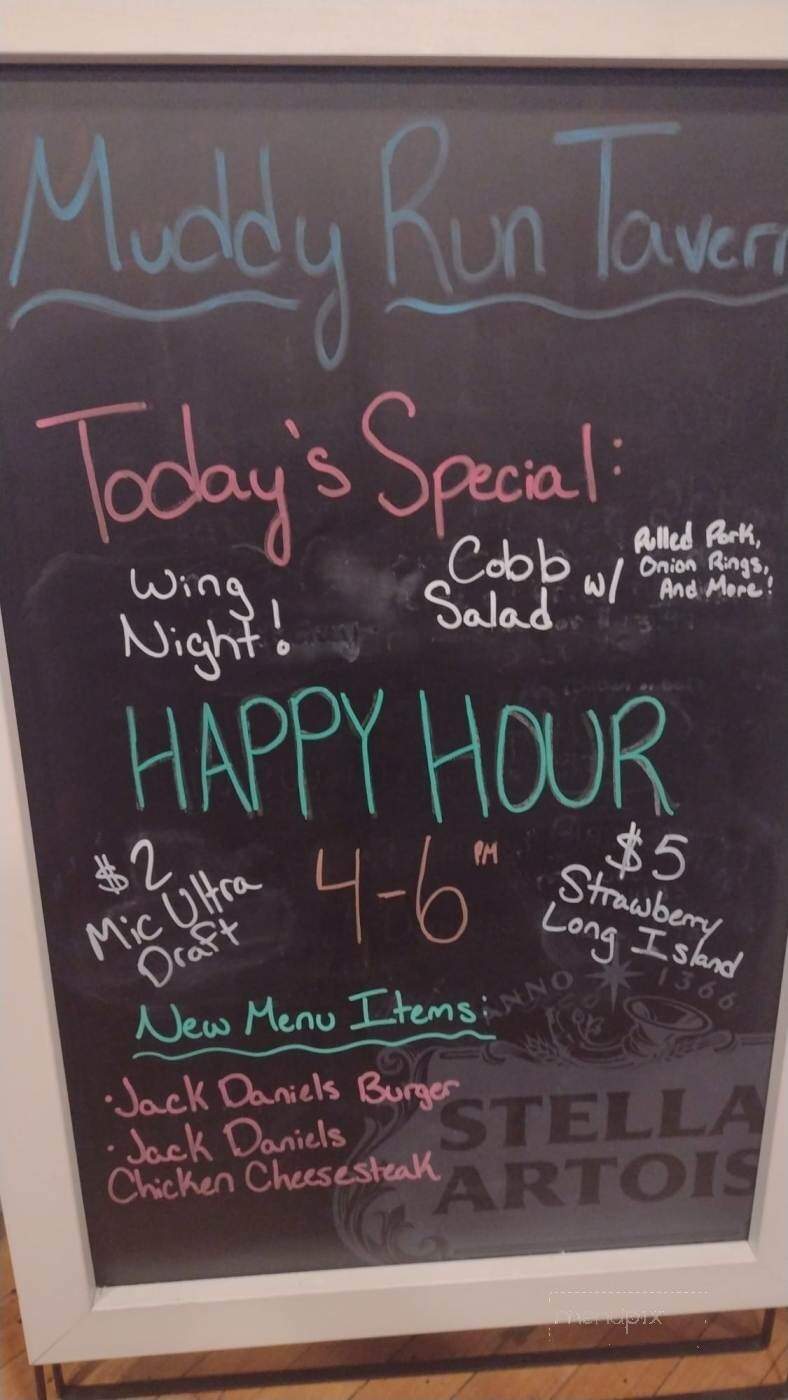 Muddy Run Tavern
Today's Special:
Wing
Night!
Cobb
Salad
w/
Pulled Pork,
Onion Rings,
And More!
HAPPY HOUR
$2
Mic Ultra
Draft
4-6 PM
$5
Strawberry
Long Island
New Menu Items:
·Jack Daniels Burger
·Jack Daniels
Chicken Cheesesteak
ANNO 1366
STELLA
ARTOIS
menupix